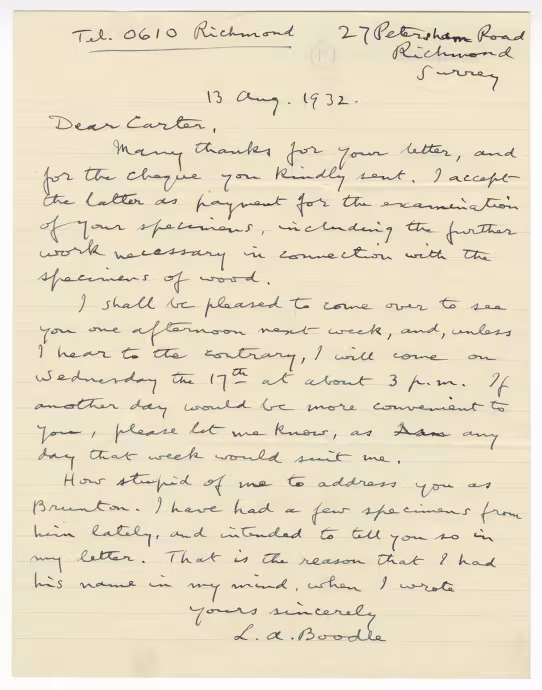 Tel. 0610 Richmond
27 Petersham Road
Richmond
Surrey
13 Aug. 1932.
Dear Carter,
Many thanks for your letter, and
for the cheque you kindly sent. I accept
the latter as payment for the examination
of your specimens, including the further
work necessary in connection with the
specimens of wood.
I shall be pleased to come over to see
you one afternoon next week, and, unless
I hear to the contrary, I will come on
Wednesday the 17th at about 3 p.m. If
another day would be more convenient to
you, please let me know, as any
day that week would suit me.
How stupid of me to address you as
Brunton. I have had a few specimens from
him lately, and intended to tell you so in
my letter. That is the reason that I had
his name in my mind, when I wrote
Yours sincerely
L. A. Boodle